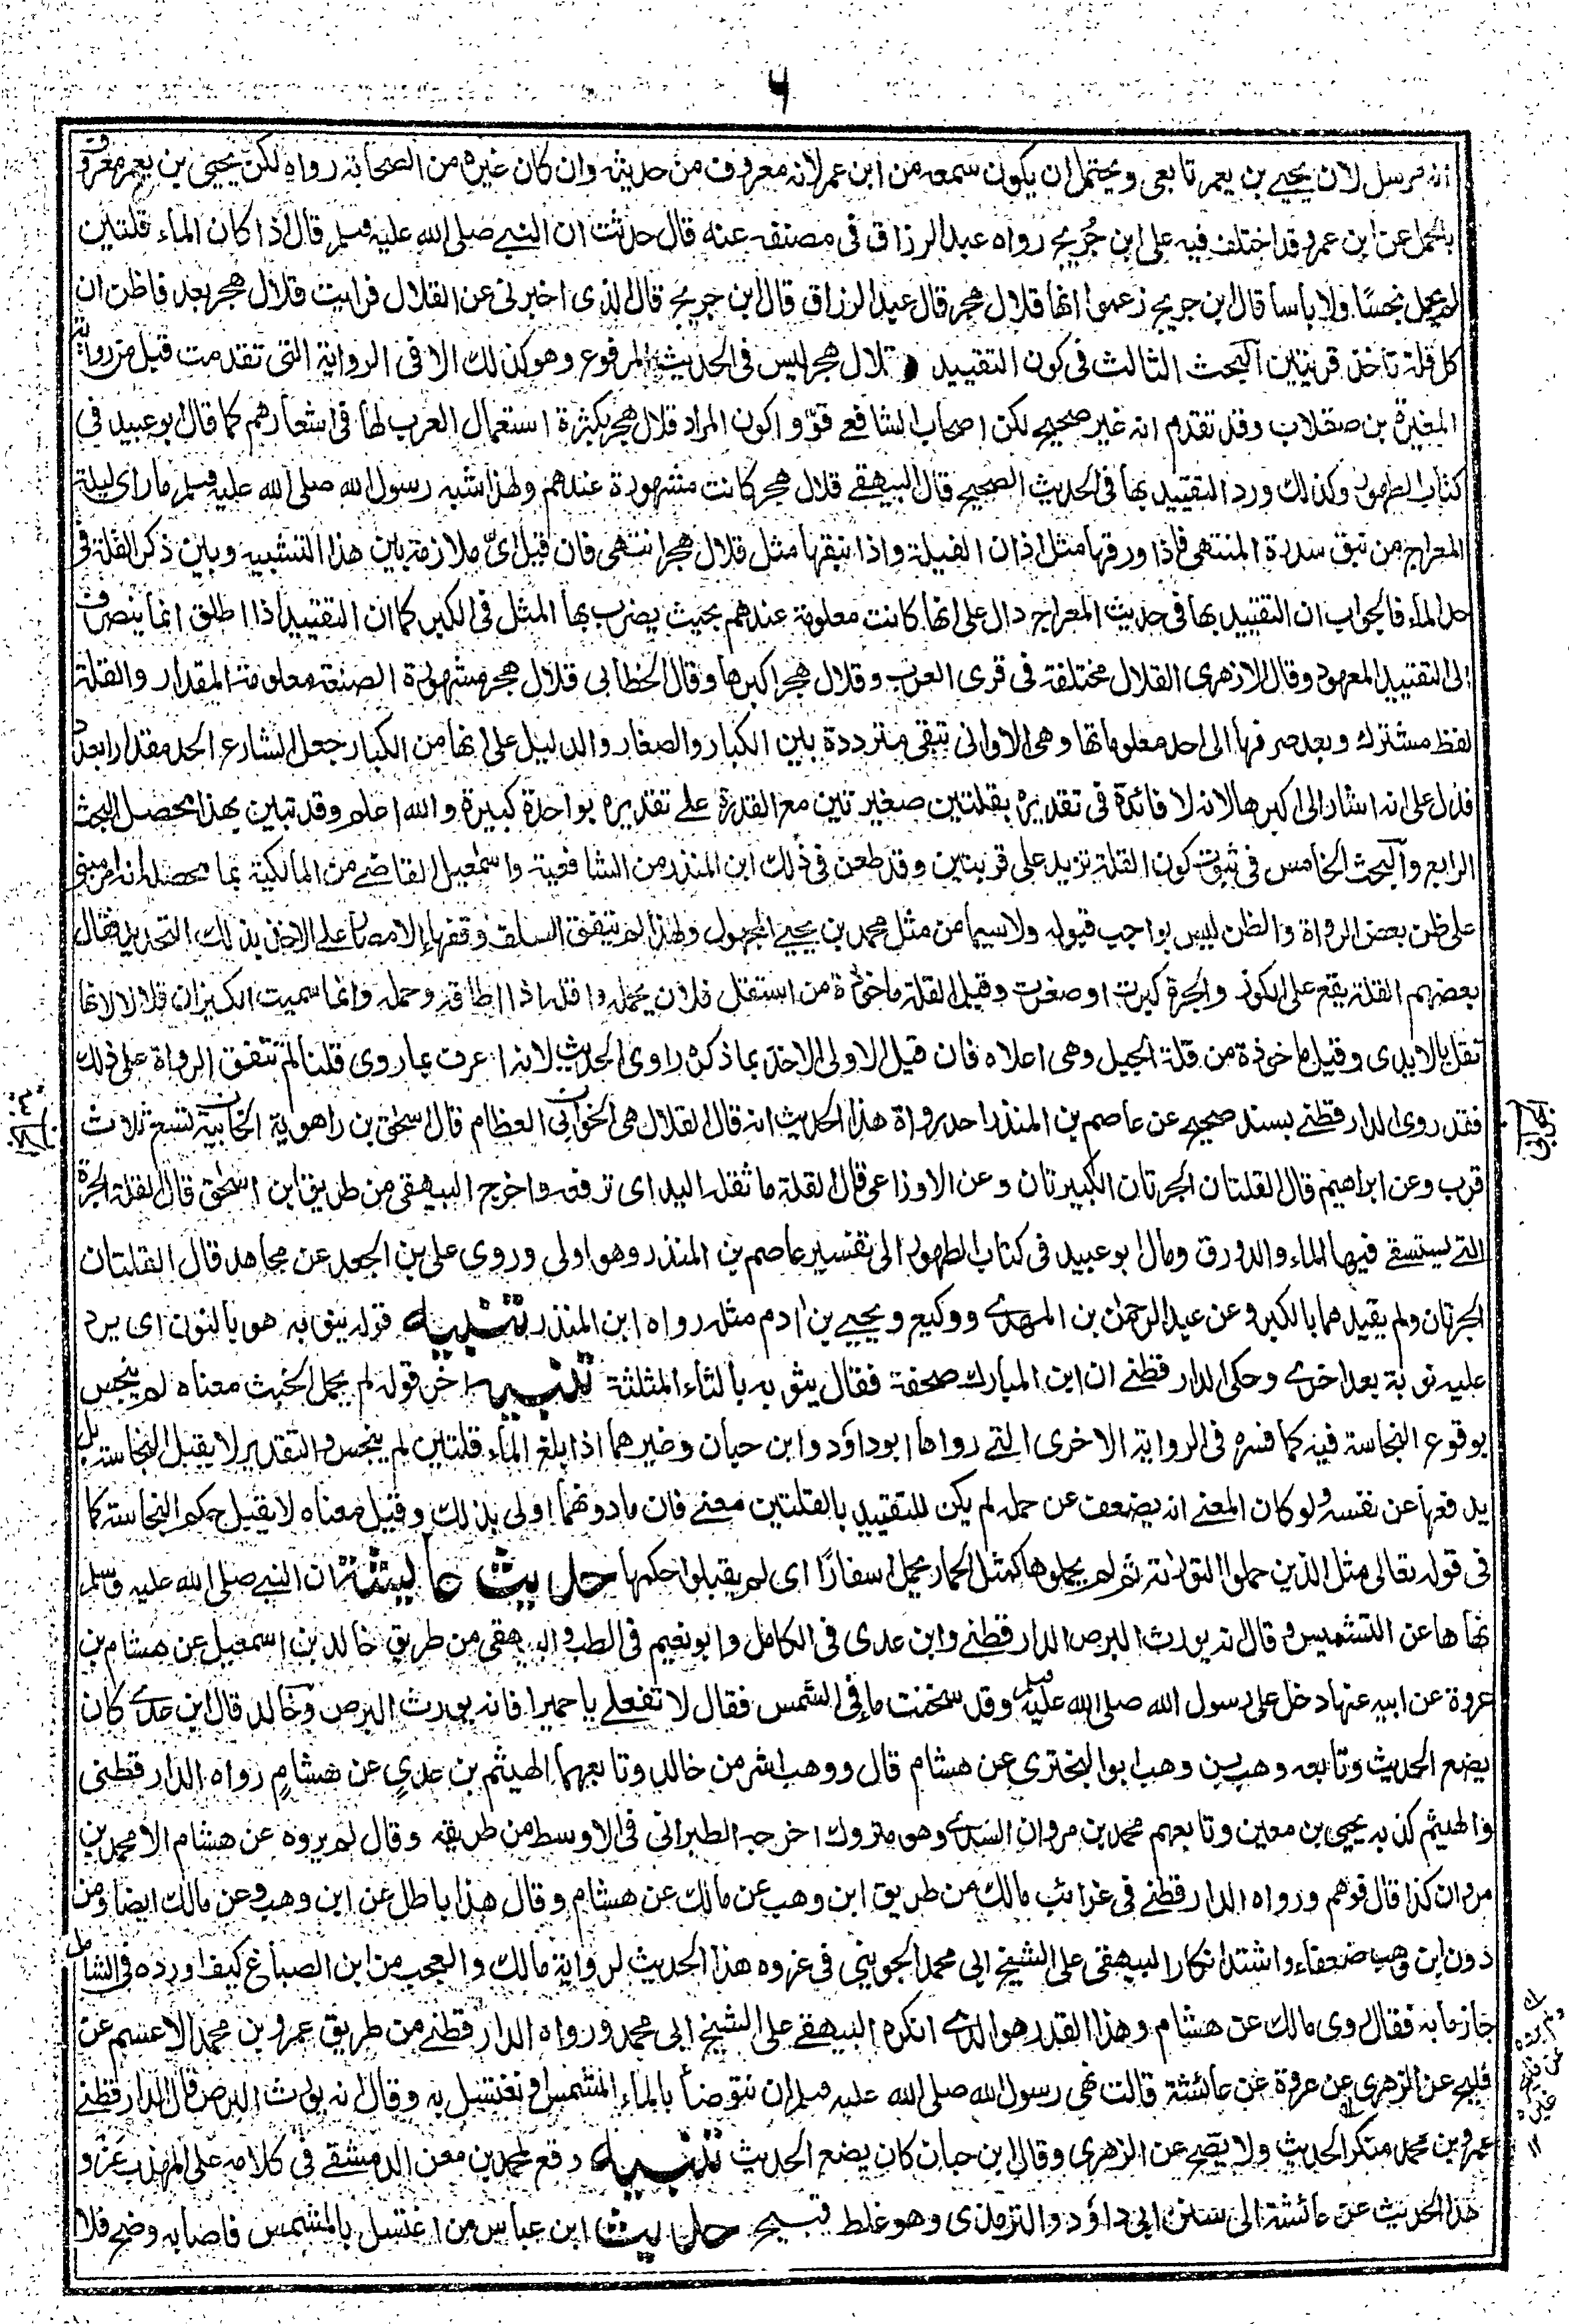 ٦
انه مرسل لان يحيى بن يعمر تابعى ويحتمل ان يكون سمعه من ابن عمر لانه معروف من حديثه وان كان غيره من الصحابة رواه لكن يحيى بن يعمر معروف
بالحمل عن ابن عمر وقد اختلف فيه على ابن جُريج رواه عبد الرزاق فى مصنفه عنه قال حدثت ان النبي صلى الله عليه وسلم قال اذا كان الماء قلتين
لم يحمل نجسًا ولا باسا قال ابن جريج زعموا انها قلال هجر قال عبد الرزاق قال ابن جريج قال الذى اخبرنى عن القلال فرايت قلال هجر بعد فاظن ان
كل قلة تاخذ قربتين البحث الثالث فى كون التقييد بقلال هجر ليس فى الحديث المرفوع وهو كذلك الا فى الرواية التى تقدمت قبل من رواية
المغيرة بن صقلاب وقد تقدم انه غير صحيح لكن اصحاب الشافعي قوّوا كون المراد قلال هجر بكثرة استعمال العرب لها فى اشعارهم كما قال ابو عبيد في
كتاب الطهور وكذلك ورد التقييد بها فى الحديث الصحيح قال البيهقي قلال هجر كانت مشهورة عندهم ولهذا شبه رسول الله صلى الله عليه وسلم ما راى ليلة
المعراج من نبق سدرة المنتهى فاذا ورقها مثل اذان الفيلة واذا نبقها مثل قلال هجر انتهى فان قيل اىّ ملازمة بين هذا التشبيه وبين ذكر القلة فى
حد الماء فالجواب ان التقييد بها فى حديث المعراج دال على انها كانت معلومة عندهم بحيث يضرب بها المثل فى الكبر كما ان التقييد اذا اطلق انما ينصرف
الى التقييد المعهود وقال الازهرى القلال مختلفة فى قرى العرب وقلال هجر اكبرها وقال الخطابى قلال هجر مشهورة الصنعة معلومة المقدار والقلة
لفظ مشترك وبعد صرفها الى احد معلوماتها وهى الاوانى تبقى مترددة بين الكبار والصغار والدليل على انها من الكبار جعل الشارع الحد مقدرا بعدد
فدل على انه اشار الى اكبرها لانه لا فائدة فى تقديره بقلتين صغيرتين مع القدرة على تقديره بواحدة كبيرة والله اعلم وقد تبين بهذا محصل البحث
الرابع والبحث الخامس فى ثبوت كون القلة تزيد على قربتين وقد طعن فى ذلك ابن المنذر من الشافعية واسمعيل القاضي من المالكية بما محصله انه امر مبنى
على ظن بعض الرواة والظن ليس بواجب قبوله ولا سيما من مثل محمد بن يحيي المجهول ولهذا لم يتفق السلف وفقهاء الامصار على الاخذ بذلك التحديد فقال
بعضهم القلة يقع على الكوز والجرة كبرت او صغرت وقيل القلة ماخوذة من استقل فلان بحمله واقله اذا اطاقه وحمله وانما سميت الكيزان قلالا لانها
تقل بالايدى وقيل ماخوذة من قلة الجبل وهى اعلاه فان قيل الاولى الاخذ بما ذكره راوى الحديث لانه اعرف بما روى قلنا لم تتفق الرواة على ذلك
فقد روى الدارقطنى بسند صحيح عن عاصم بن المنذر احد رواة هذا الحديث انه قال القلال هى الخوابى العظام قال اسحٰق بن راهوية الخابية تسع ثلاث
قرب وعن ابراهيم قال القلتان الجرتان الكبيرتان وعن الاوزاعى قال القلة ما تقله اليد اى ترفعه واخرج البيهقى من طريق ابن اسحٰق قال القلة الجرة
التي يستسقى فيها الماء والدورق ومال ابو عبيد فى كتاب الطهور الى تفسير عاصم بن المنذر وهو اولى وروى على بن الجعد عن مجاهد قال القلتان
الجرتان ولم يقيدهما بالكبر وعن عبد الرحمٰن بن المهدي ووكيع ويحيي بن ادم مثله رواه ابن المنذر تنبيه قوله ينوبه هو بالنون اى يرد
عليه نوبة بعد اخرى وحكى الدارقطني ان ابن المبارك صحفه فقال يثوبه بالثاء المثلثة تنبيه اخر قوله لم يحمل الخبث معناه لم ينجس
بوقوع النجاسة فيه كما فسره فى الرواية الاخرى التي رواها ابو داؤد وابن حبان وغيرهما اذا بلغ الماء قلتين لم ينجس والتقدير لا يقبل النجاسة بل
يدفعها عن نفسه ولو كان المعنى انه يضعف عن حمله لم يكن للتقييد بالقلتين معنى فان ما دونهما اولى بذلك وقيل معناه لا يقبل حكم النجاسة كما
فى قوله تعالى مثل الذين حملوا التوراتة ثم لم يحملوها كمثل الحمار يحمل اسفارًا اى لم يقبلوا حكمها حديث عائشة ان النبي صلى الله عليه وسلم
نهاها عن التشميس وقال انه يورث البرص الدارقطني وابن عدى فى الكامل وابو نعيم فى الطب والبيهقى من طريق خالد بن اسمعيل عن هشام بن
عروة عن ابيه عنها دخل على رسول الله صلى الله عليه وسلم وقد سخنت ماء فى الشمس فقال لا تفعلى يا حميرا فانه يورث البرص وخالد قال ابن عدي كان
يضع الحديث وتابعه وهب بن وهب ابو البخترى عن هشام قال ووهب اشر من خالد وتابعهما الهيثم بن عدي عن هشام رواه الدارقطنى
والهيثم كذبه يحيى بن معين وتابعهم محمد بن مروان السدي وهو متروك اخرجه الطبرانى فى الاوسط من طريقه وقال لم يروه عن هشام الا محمد بن
مروان كذا قال فوهم ورواه الدارقطني فى غرائب مالك من طريق ابن وهب عن مالك عن هشام وقال هذا باطل عن ابن وهب وعن مالك ايضا ومن
دون ابن وهب ضعفاء واشتد انكار البيهقى على الشيخ ابى محمد الجوينى فى عزوه هذا الحديث لرواية مالك والعجب من ابن الصباغ كيف اورده فى الشامل
جازما به فقال روى مالك عن هشام وهذا القدر هو الذي انكره البيهقي على الشيخ ابى محمد ورواه الدارقطني من طريق عمرو بن محمد الاعسم عن
فليح عن الزهرى عن عروة عن عائشة قالت نهى رسول الله صلى الله عليه وسلم ان نتوضأ بالماء المشمس او نغتسل به وقال انه يورث البرص قال الدارقطني
عمرو بن محمد منكر الحديث ولا يصح عن الزهرى وقال ابن حبان كان يضع الحديث تنبيه وقع لمحمد بن معن الدمشقي فى كلامه على المهذب عزو
هذا الحديث عن عائشة الى سنن ابى داؤد والترمذى وهو غلط قبيح حديث ابن عباس من اغتسل بالمشمس فاصابه وضح فلا